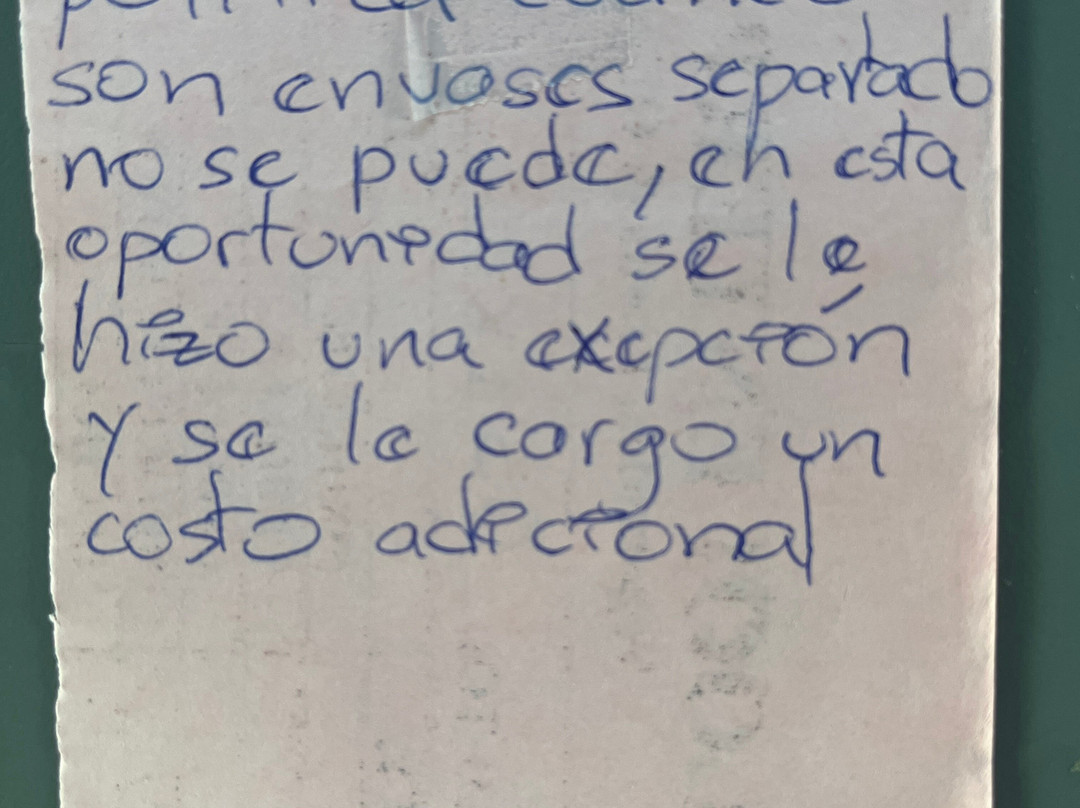 son envases separado
no se puede, en esta
oportunidad se le
hizo una exepción
y se le cargo un
costo adicional